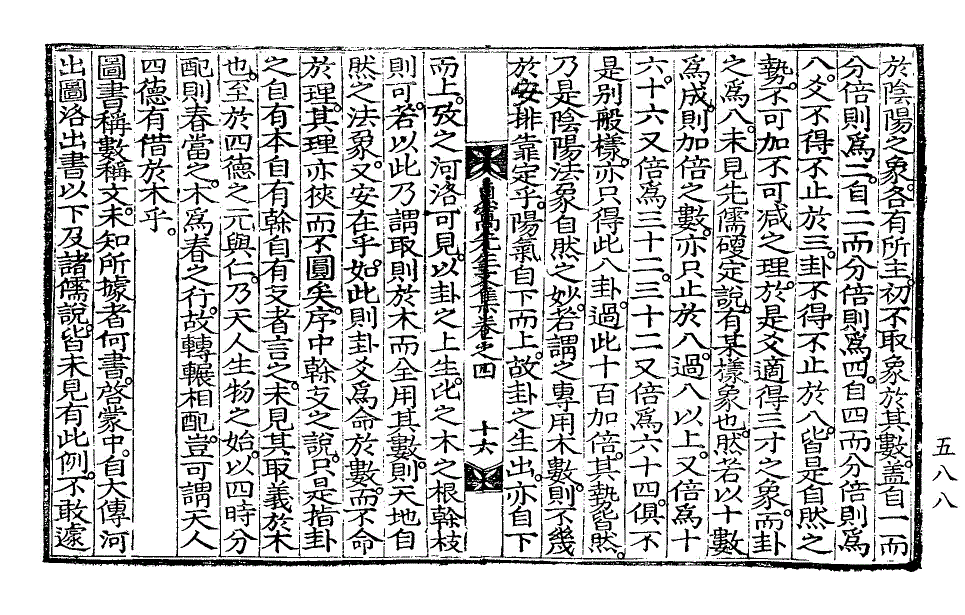 於陰陽之象。各有所主。初不取象於其數。蓋自一而
分倍則爲二。自二而分倍則爲四。自四而分倍則爲
八。爻不得不止於三。卦不得不止於八。皆是自然之
勢。不可加不可減之理。於是爻適得三才之象。而卦
之爲八。未見先儒硬定說。有某樣象也。然若以十數
爲成。則加倍之數。亦只止於八。過八以上。又倍爲十
六。十六又倍爲三十二。三十二又倍爲六十四。俱不
是別般樣。亦只得此八卦。過此十百加倍。其埶皆然。
乃是陰陽法象自然之妙。若謂之專用木數。則不幾
於安排靠定乎。陽氣自下而上。故卦之生出。亦自下
先生文集卷之四 十六
而上。攷之河洛可見。以卦之上生。比之木之根榦枝
則可。若以此乃謂取則於木而全用其數。則天地自
然之法象。又安在乎。如此則卦爻爲命於數。而不命
於理。其理亦狹而不圓矣。序中榦爻之說。只是指卦
之自有本自有榦自有爻者言之。未見其取義於木
也。至於四德之元與仁。乃天人生物之始。以四時分
配則春當之。木爲春之行。故轉輾相配。豈可謂天人
四德有借於木乎。
圖書稱數稱文。未知所據者何書。啓蒙中。自大傳河
出圖洛出書以下及諸儒說。皆未見有此例。不敢遽
五八八